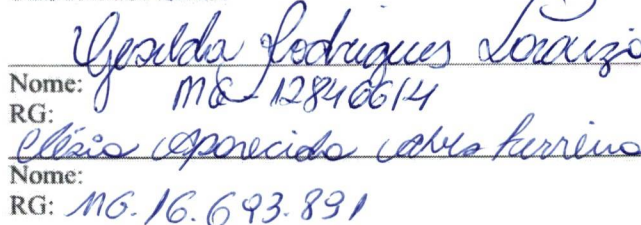 Geselda Rodrigues Lorenzo
Nome:
RG: MG-12846614
Clésio Aparecido Alves Ferreira
Nome:
RG: MG.16.693.891